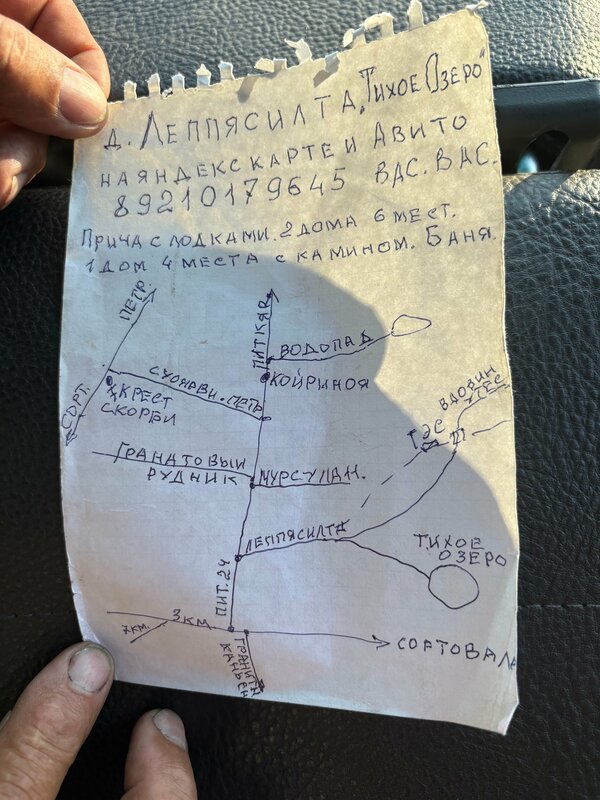 д. Леппясилта, "Тихое Озеро"
на Яндекс карте и Авито
89210179645 Вас. Вас.
Прича с лодками. 2 дома 6 мест.
1 дом 4 места с камином. Баня.
ПЕТР
ПИТКЯР
ВОДОПАД
КОЙРИНОЯ
СОРТ.
КРЕСТ
СКОРБИ
ВДОВИН
ГЭС
ГЭС
ГРАНАТОВЫЙ
РУДНИК
МУРСУЛАН.
ЛЕППЯСИЛТА
ТИХОЕ
ОЗЕРО
ПИТ. 24
3 КМ
7КМ.
СОРТОВАЛА
ГРАНИТН
КАНЬЕН